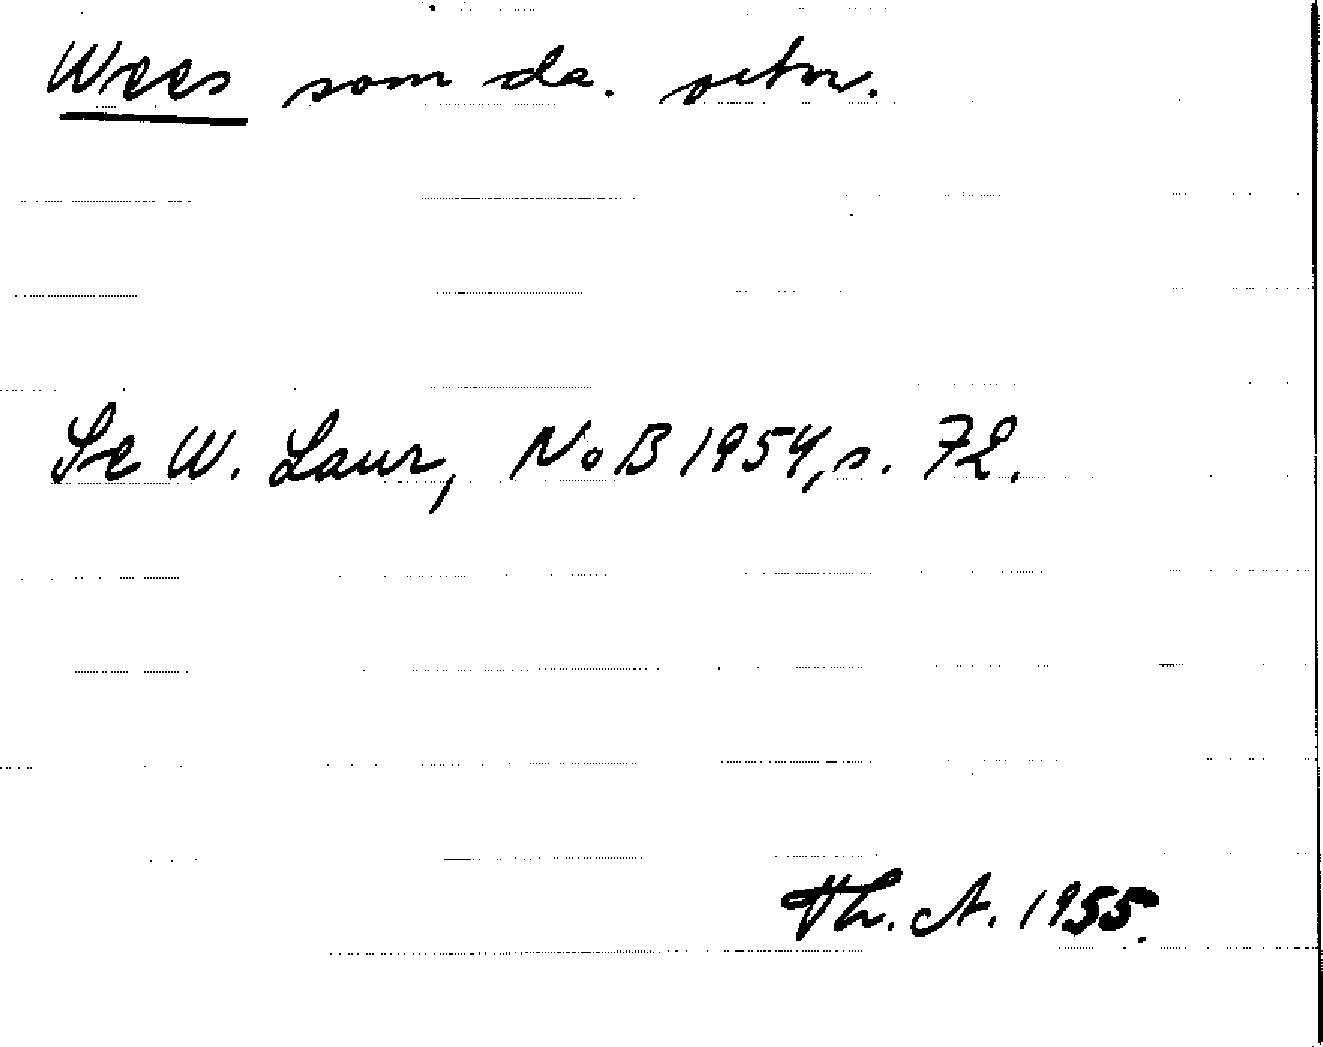 Wees som da. sobn.
Se W. Laur, NoB 1954, s. 72.
Th. A. 1955.